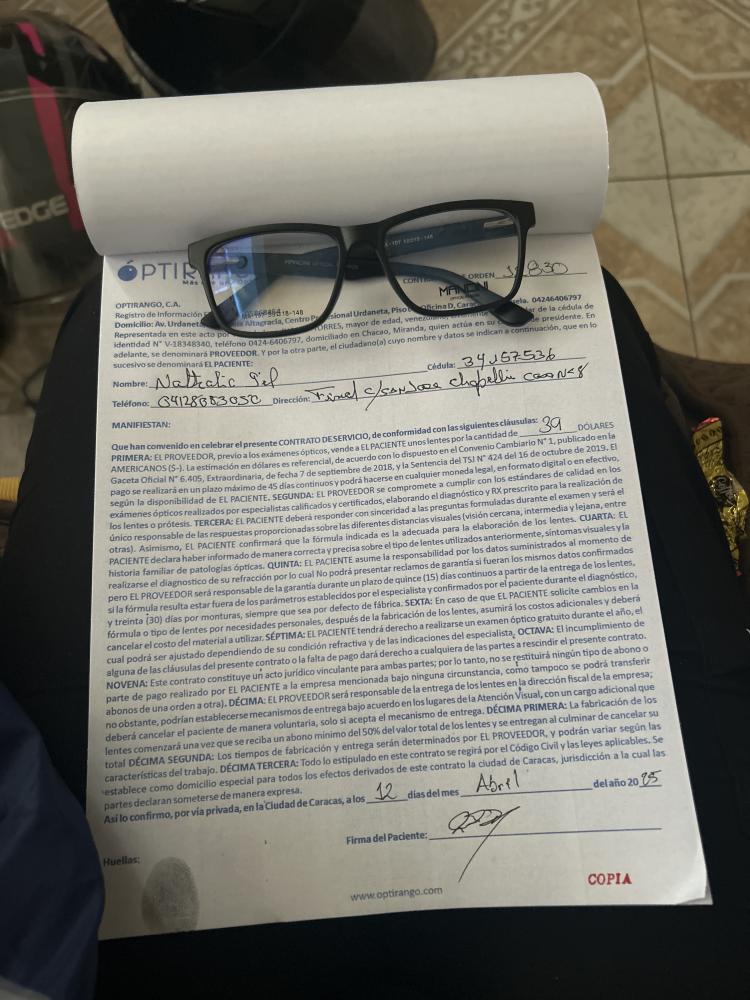 EDGE
ÓPTIRANGO
ORDEN
MANCINI
OPTIRANGO, C.A.
Registro de Información
Domicilio: Av. Urdaneta, Altagracia, Centro Profesional Urdaneta, Piso Oficina D, 04246406797
Representada en este acto por TORRES, mayor de edad, de la cédula de
identidad N° V-18348340, teléfono 0424-6406797, domiciliado en Chacao, Miranda, quien actúa en su de presidente. En
adelante, se denominará PROVEEDOR. Y por la otra parte, el ciudadano(a) cuyo nombre y datos se indican a continuación, que en lo
sucesivo se denominará EL PACIENTE:
Nombre: Cédula: 34157536
Teléfono: Dirección: Final c/
MANIFIESTAN:
Que han convenido en celebrar el presente CONTRATO DE SERVICIO, de conformidad con las siguientes cláusulas:
PRIMERA: EL PROVEEDOR, previo a los exámenes ópticos, vende a EL PACIENTE unos lentes por la cantidad de 39 DÓLARES
AMERICANOS (S-). La estimación en dólares es referencial, de acuerdo con lo dispuesto en el Convenio Cambiario N° 1, publicado en la
Gaceta Oficial N° 6.405, Extraordinaria, de fecha 7 de septiembre de 2018, y la Sentencia del TSJ N° 424 del 16 de octubre de 2019. El
pago se realizará en un plazo máximo de 45 días continuos y podrá hacerse en cualquier moneda legal, en formato digital o en efectivo,
según la disponibilidad de EL PACIENTE. SEGUNDA: EL PROVEEDOR se compromete a cumplir con los estándares de calidad en los
exámenes ópticos realizados por especialistas calificados y certificados, elaborando el diagnóstico y RX prescrito para la realización de
los lentes o prótesis. TERCERA: EL PACIENTE deberá responder con sinceridad a las preguntas formuladas durante el examen y será el
único responsable de las respuestas proporcionadas sobre las diferentes distancias visuales (visión cercana, intermedia y lejana, entre
otras). Asimismo, EL PACIENTE confirmará que la fórmula indicada es la adecuada para la elaboración de los lentes. CUARTA: EL
PACIENTE declara haber informado de manera correcta y precisa sobre el tipo de lentes utilizados anteriormente, síntomas visuales y la
historia familiar de patologías ópticas. QUINTA: EL PACIENTE asume la responsabilidad por los datos suministrados al momento de
realizarse el diagnostico de su refracción por lo cual No podrá presentar reclamos de garantía si fueran los mismos datos confirmados
pero EL PROVEEDOR será responsable de la garantía durante un plazo de quince (15) días continuos a partir de la entrega de los lentes,
si la fórmula resulta estar fuera de los parámetros establecidos por el especialista y confirmados por el paciente durante el diagnóstico,
y treinta (30) días por monturas, siempre que sea por defecto de fábrica. SEXTA: En caso de que EL PACIENTE solicite cambios en la
fórmula o tipo de lentes por necesidades personales, después de la fabricación de los lentes, asumirá los costos adicionales y deberá
cancelar el costo del material a utilizar. SÉPTIMA: EL PACIENTE tendrá derecho a realizarse un examen óptico gratuito durante el año, el
cual podrá ser ajustado dependiendo de su condición refractiva y de las indicaciones del especialista. OCTAVA: El incumplimiento de
alguna de las cláusulas del presente contrato o la falta de pago dará derecho a cualquiera de las partes a rescindir el presente contrato.
NOVENA: Este contrato constituye un acto jurídico vinculante para ambas partes; por lo tanto, no se restituirá ningún tipo de abono o
parte de pago realizado por EL PACIENTE a la empresa mencionada bajo ninguna circunstancia, como tampoco se podrá transferir
abonos de una orden a otra). DÉCIMA: EL PROVEEDOR será responsable de la entrega de los lentes en la dirección fiscal de la empresa;
no obstante, podrían establecerse mecanismos de entrega bajo acuerdo en los lugares de la Atención Visual, con un cargo adicional que
deberá cancelar el paciente de manera voluntaria, solo si acepta el mecanismo de entrega. DÉCIMA PRIMERA: La fabricación de los
lentes comenzará una vez que se reciba un abono mínimo del 50% del valor total de los lentes y se entregan al culminar de cancelar su
total DÉCIMA SEGUNDA: Los tiempos de fabricación y entrega serán determinados por EL PROVEEDOR, y podrán variar según las
características del trabajo. DÉCIMA TERCERA: Todo lo estipulado en este contrato se regirá por el Código Civil y las leyes aplicables. Se
establece como domicilio especial para todos los efectos derivados de este contrato la ciudad de Caracas, jurisdicción a la cual las
partes declaran someterse de manera expresa.
Así lo confirmo, por vía privada, en la Ciudad de Caracas, a los 12 días del mes Abril del año 2025
Firma del Paciente:
Huellas:
www.optirango.com
COPIA